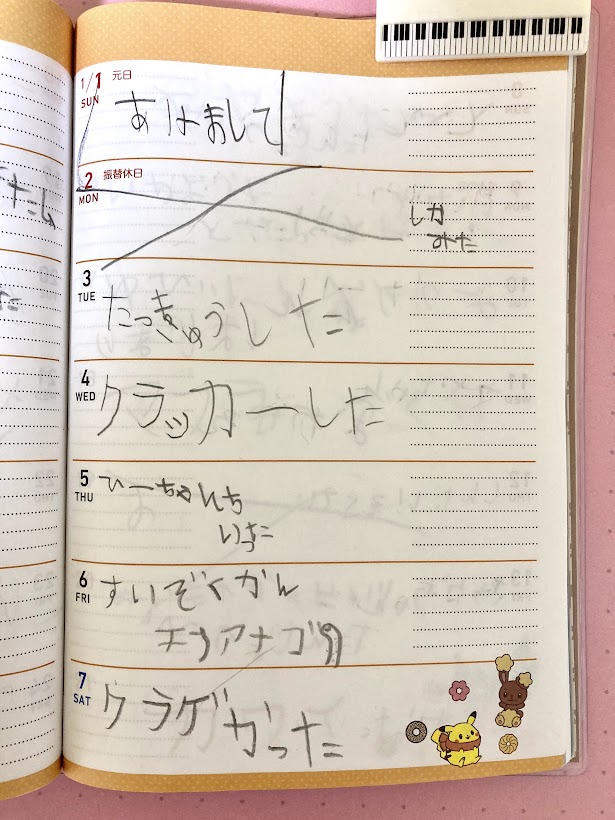 1/1 元日
SUN
あけまして
2 振替休日
MON
しか
みた
3
TUE
たっきゅうした
4
WED
クラッカーした
5
THU
ひーちゃんち
いった
6
FRI
すいぞくかん
チンアナゴ
7
SAT
クラゲかった